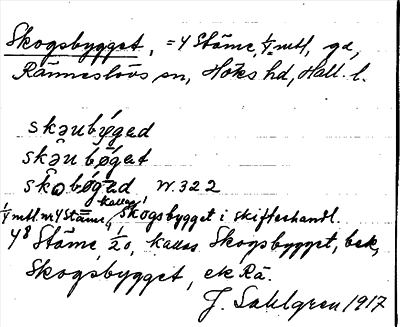 Skogsbygget, = 4 Stäme, ¼ mtl, gd,
Ränneslövs sn, Höks hd, Hall. l.
skəubǿgəd
skəu bǿgət
skobǿgəd W. 322
kallas
¼ mtl. nr 4 Stäme, Skogsbygget i skifteshandl.
4⁸ Stäme, 1/20, kallas Skogsbygget, bek,
Skogsbygget, ek Rä.
J. Sahlgren 1917